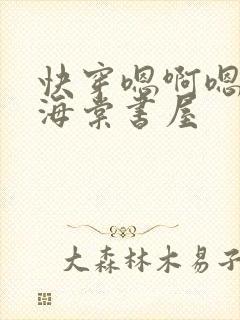 快穿嗯啊嗯
海棠书屋
大森林木易子